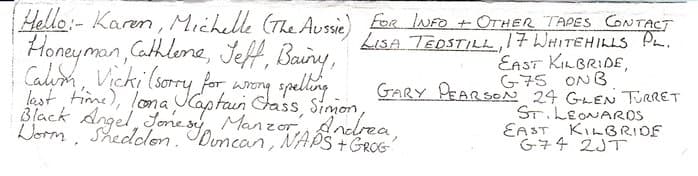 Hello:- Karen, Michelle (The Aussie)
Honeyman, Cathlene, Jeff, Bainy,
Calum, Vicki (sorry for wrong spelling
last time), Iona, Captain Crass, Simon,
Black Angel, Jonesy, Manzor, Andrea,
Worm, Sneddon, Duncan, NAPS + GROG.
FOR INFO + OTHER TAPES CONTACT
LISA TEDSTILL, 17 WHITEHILLS PL.
EAST KILBRIDE,
G75 ONB.
GARY PEARSON 24 GLEN TURRET
ST. LEONARDS
EAST KILBRIDE
G74 2JT